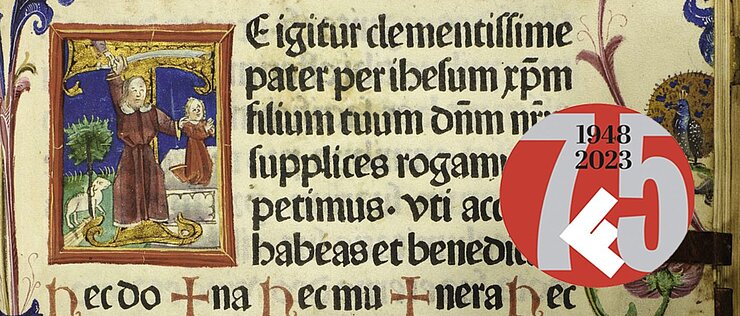 TE igitur clementissime
pater per ihesum xp̄m
filium tuum dn̄m
supplices rogamu
petimus · vti acc
habeas et benedic
hec do + na hec mu + nera hec
1948
2023
75